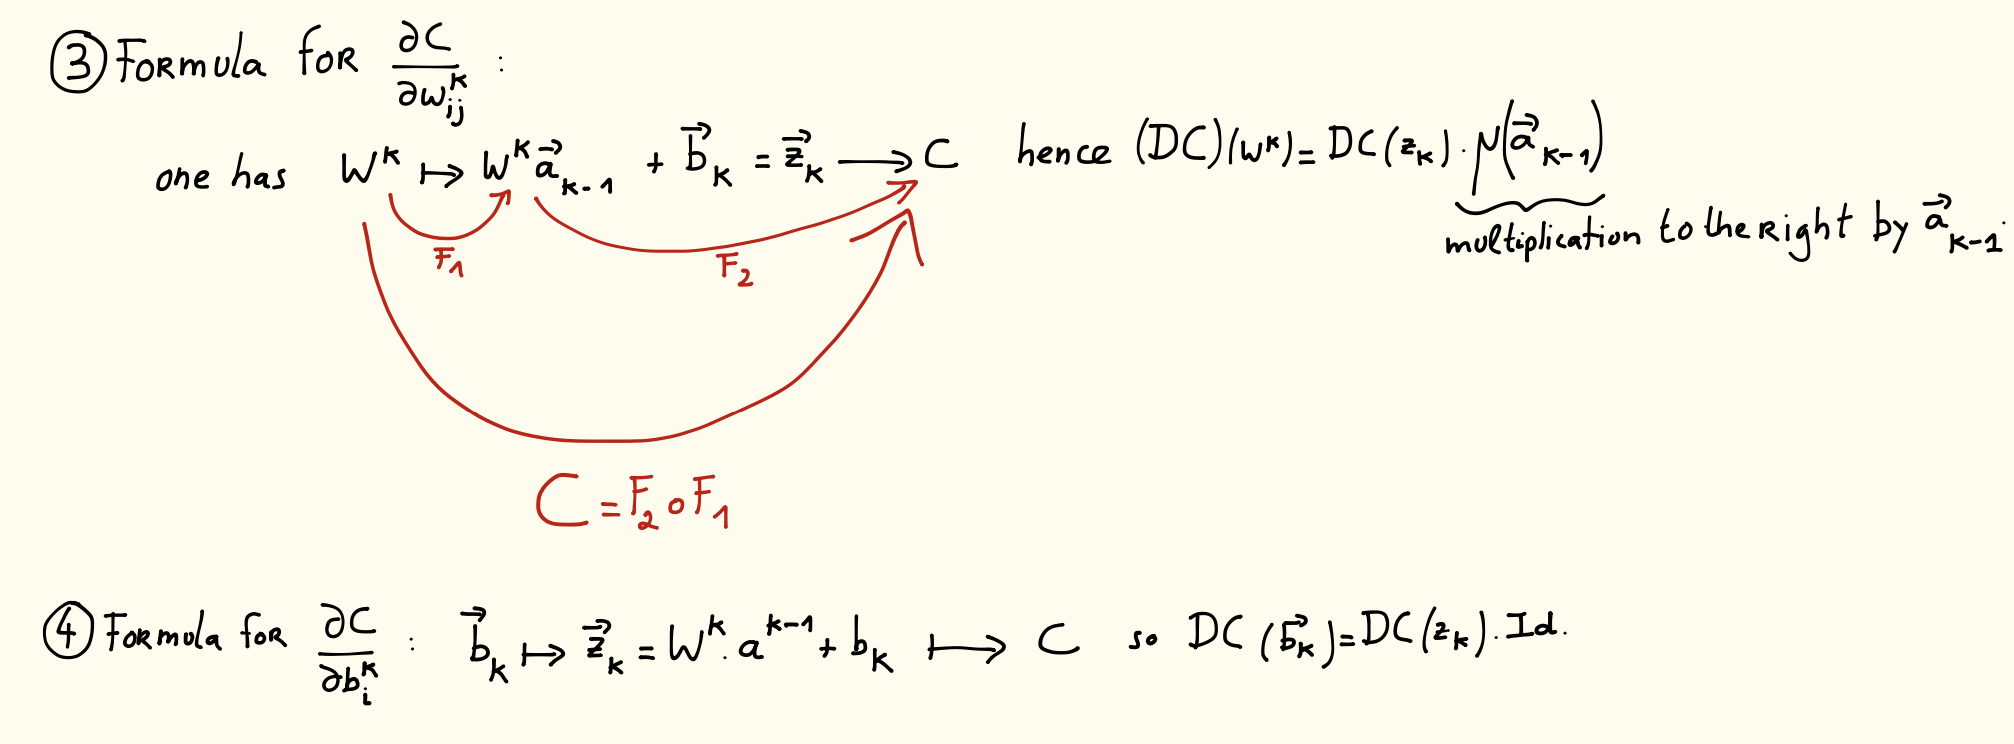 ③ Formula for ∂C/∂w_{ij}^k :
one has W^k ↦ W^k \vec{a}_{k-1} + \vec{b}_k = \vec{z}_k ⟶ C hence (DC)(W^k) = DC(z_k) . μ(\vec{a}_{k-1})
multiplication to the right by \vec{a}_{k-1}.
F_1
F_2
C = F_2 ∘ F_1
④ Formula for ∂C/∂b_i^k : \vec{b}_k ↦ \vec{z}_k = W^k . a^{k-1} + b_k ⟼ C so DC(\vec{b}_k) = DC(z_k) . Id.